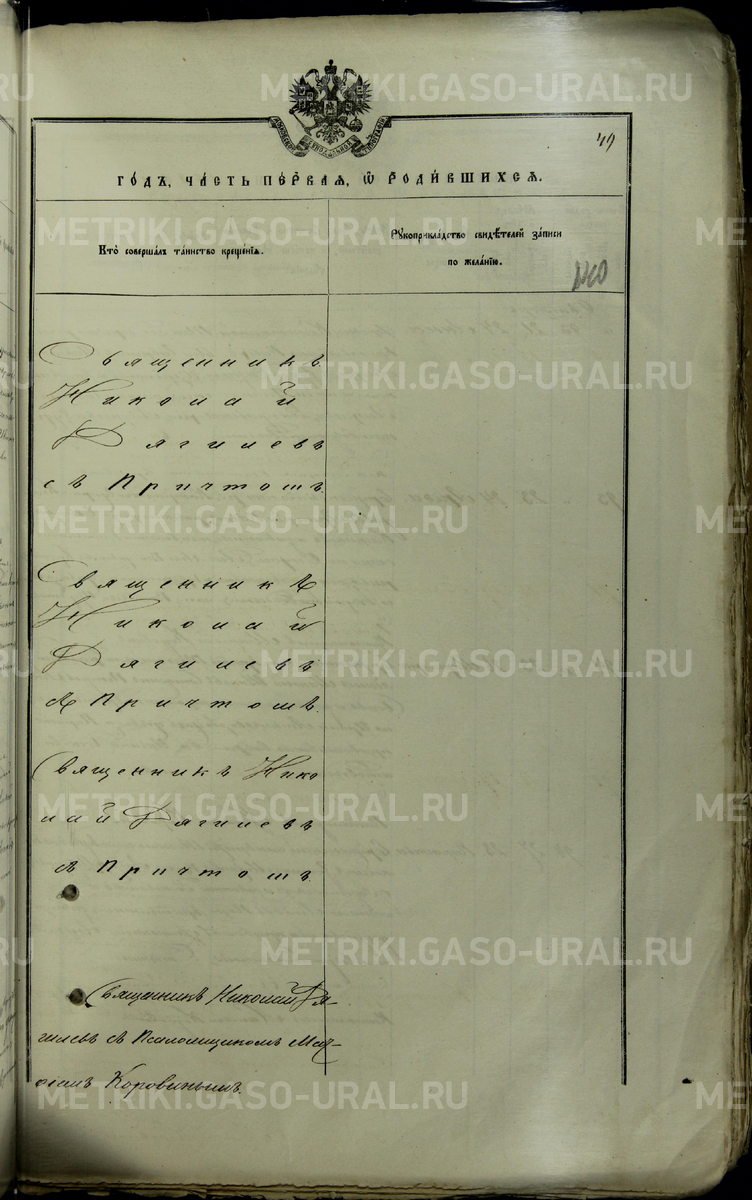 49
ГОДЪ, ЧАСТЬ ПЕРВАЯ, Ѡ РОДИВШИХСЯ.
Кто совершалъ таинство крещенія.
Рукоприкладство свидѣтелей записи
по желанію.
Священникъ
Николай
Дягилевъ
съ Причтомъ.
Священникъ
Николай
Дягилевъ
съ Причтомъ.
Священникъ Нико
лай Дягилевъ
съ Причтомъ.
Священникъ Николай Дя-
гилевъ съ Псаломщикомъ
Коровинымъ.
METRIKI.GASO-URAL.RU